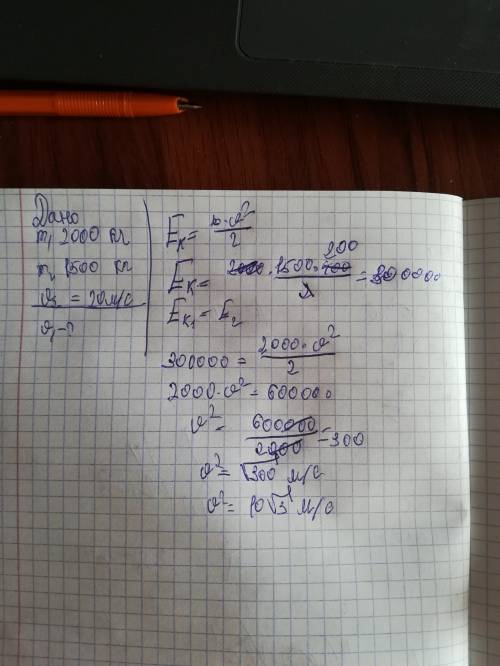 Дано
m₁ 2000 кг
m₂ 1500 кг
v₂ = 20 м/с
v₁ - ?
Eк = m·v²/2
Eк = 1500·400/2 = 300000
200
Eк₁ = E₂
300000 = 2000·v²/2
2000·v² = 600000
v² = 600000/2000 = 300
v² = √300 м/с
v² = 10√3 м/с